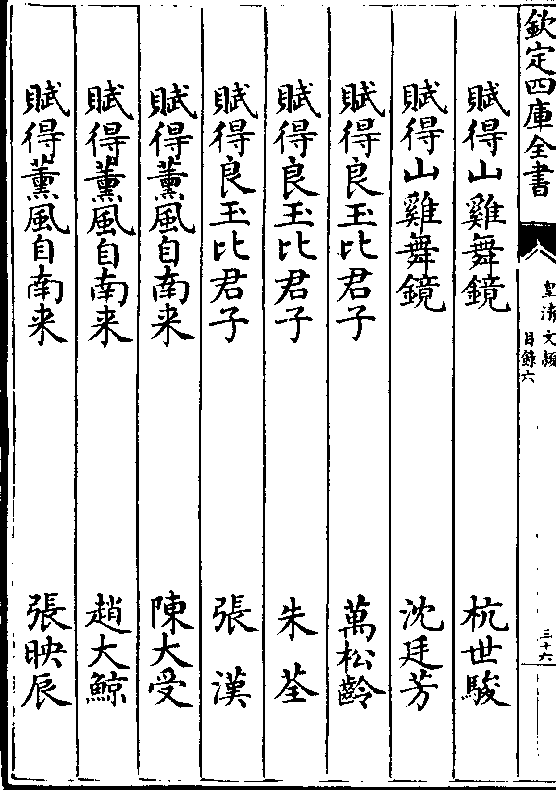 欽定四庫全書
皇清文頴
目錄六
三十六
賦得山雞舞鏡 杭世駿
賦得山雞舞鏡 沈廷芳
賦得良玉比君子 萬松齡
賦得良玉比君子 朱荃
賦得良玉比君子 張漢
賦得薰風自南来 陳大受
賦得薰風自南来 趙大鯨
賦得薰風自南来 張映辰